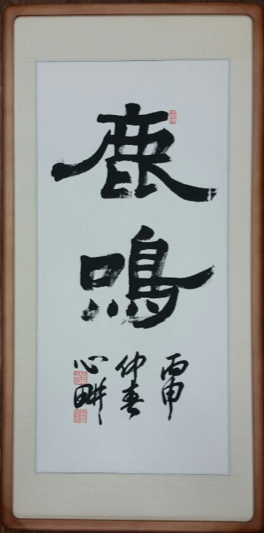 鹿鳴
丙申
仲春
心畊